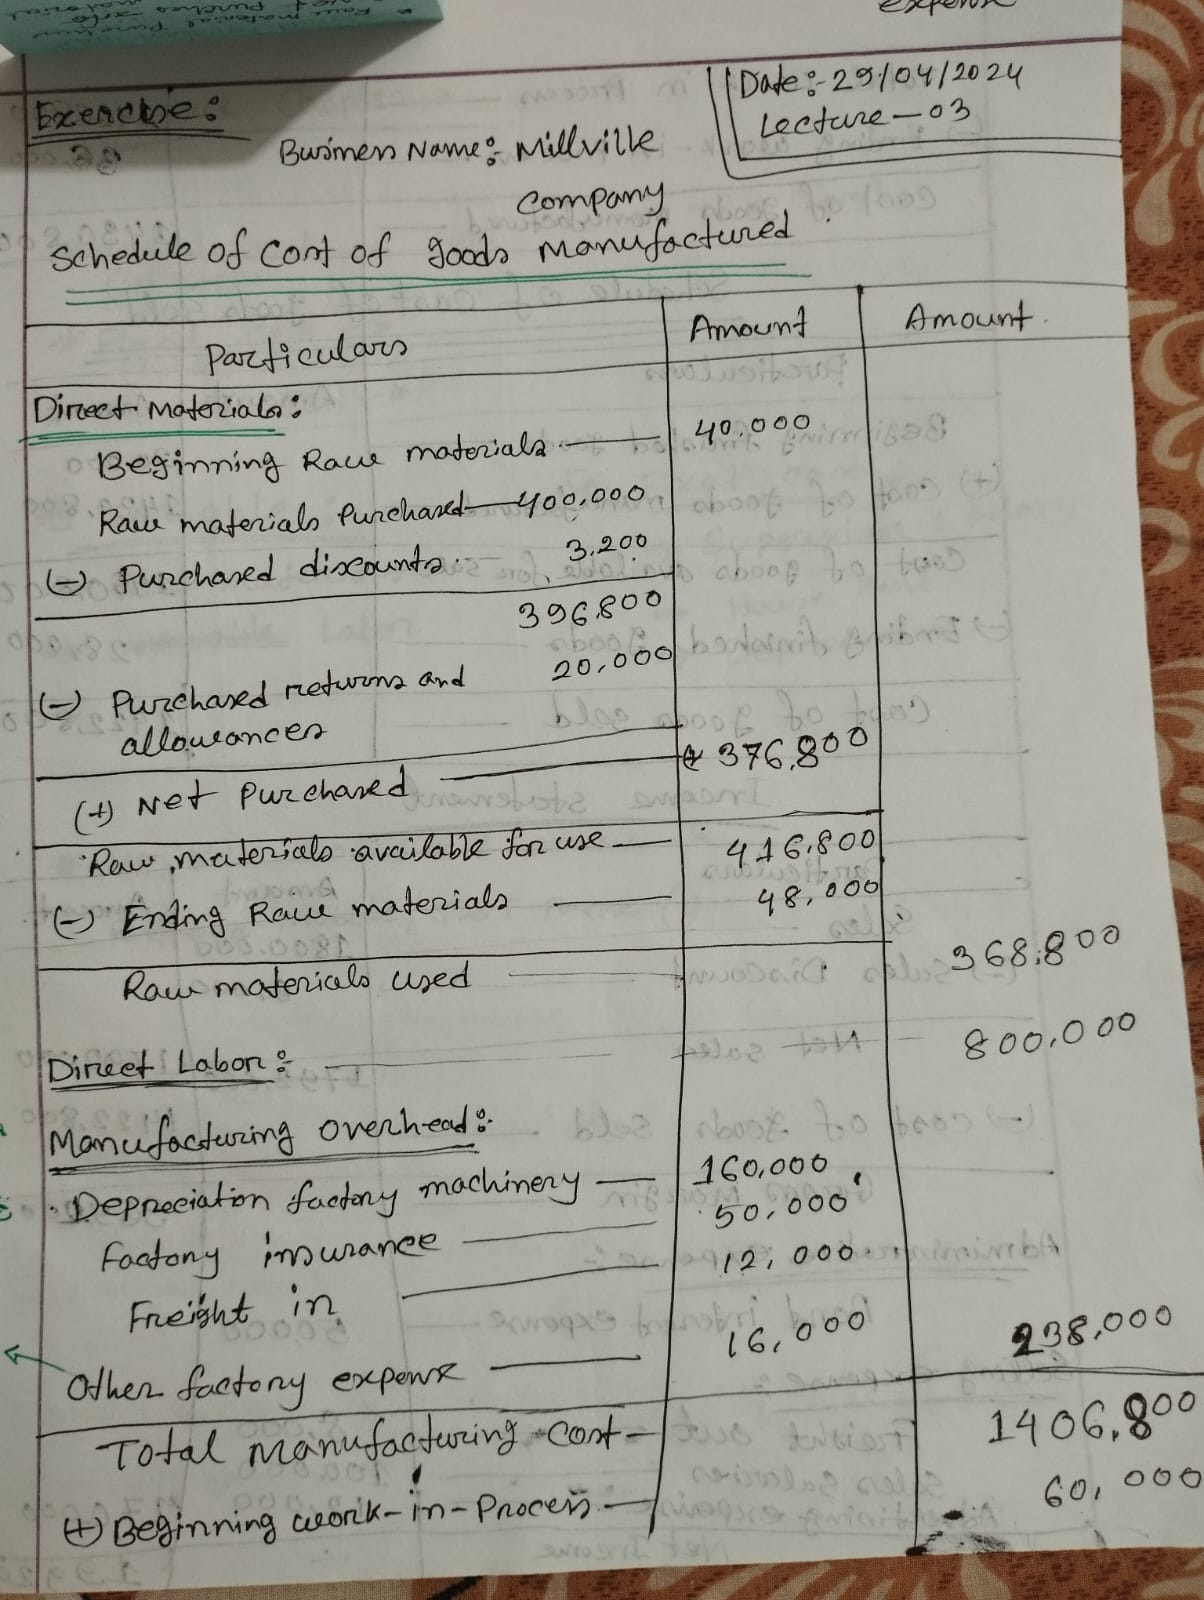 expense
Date:- 29/04/2024
Lecture-03
Exercise:
Business Name:- Millville
Company
Schedule of Cost of goods manufactured
Particulars Amount Amount.
Direct Materials:
Beginning Raw materials 40,000
Raw materials Purchased 400,000
(-) Purchased discounts 3,200
396,800
(-) Purchased returns and 20,000
allowances
(+) Net Purchased 376,800
Raw materials available for use 416,800
(-) Ending Raw materials 48,000
Raw materials used 368,800
Direct Labor: 800,000
Manufacturing Overhead:-
Depreciation factory machinery 160,000
factory insurance 50,000
Freight in 12,000
Other factory expense 16,000 238,000
Total manufacturing cost 1406,800
(+) Beginning work-in-Process 60,000